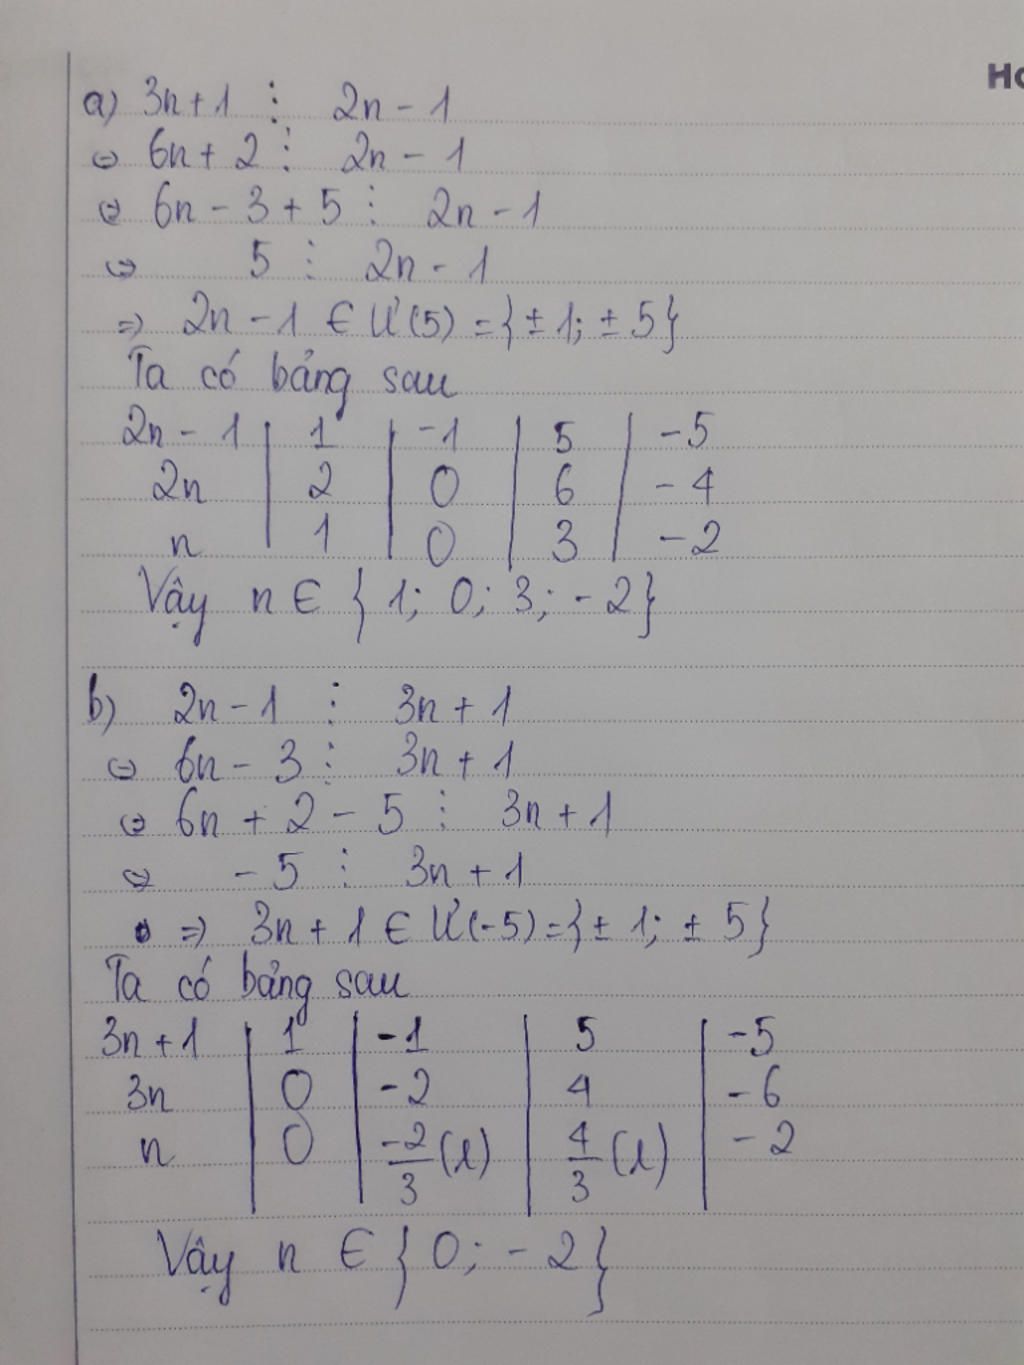 Ho
a) 3n+1 ⋮ 2n - 1
⇔ 6n + 2 ⋮ 2n - 1
⇔ 6n - 3 + 5 ⋮ 2n - 1
⇔ 5 ⋮ 2n - 1
=> 2n - 1 ∈ Ư(5) = {± 1; ± 5}
Ta có bảng sau
2n - 1 | 1 | -1 | 5 | -5
2n | 2 | 0 | 6 | -4
n | 1 | 0 | 3 | -2
Vậy n ∈ { 1; 0; 3; -2}
b) 2n - 1 ⋮ 3n + 1
⇔ 6n - 3 ⋮ 3n + 1
⇔ 6n + 2 - 5 ⋮ 3n + 1
⇔ -5 ⋮ 3n + 1
=> 3n + 1 ∈ Ư(-5) = {± 1; ± 5}
Ta có bảng sau
3n + 1 | 1 | -1 | 5 | -5
3n | 0 | -2 | 4 | -6
n | 0 | -2/3 (l) | 4/3 (l) | -2
Vậy n ∈ { 0; -2}